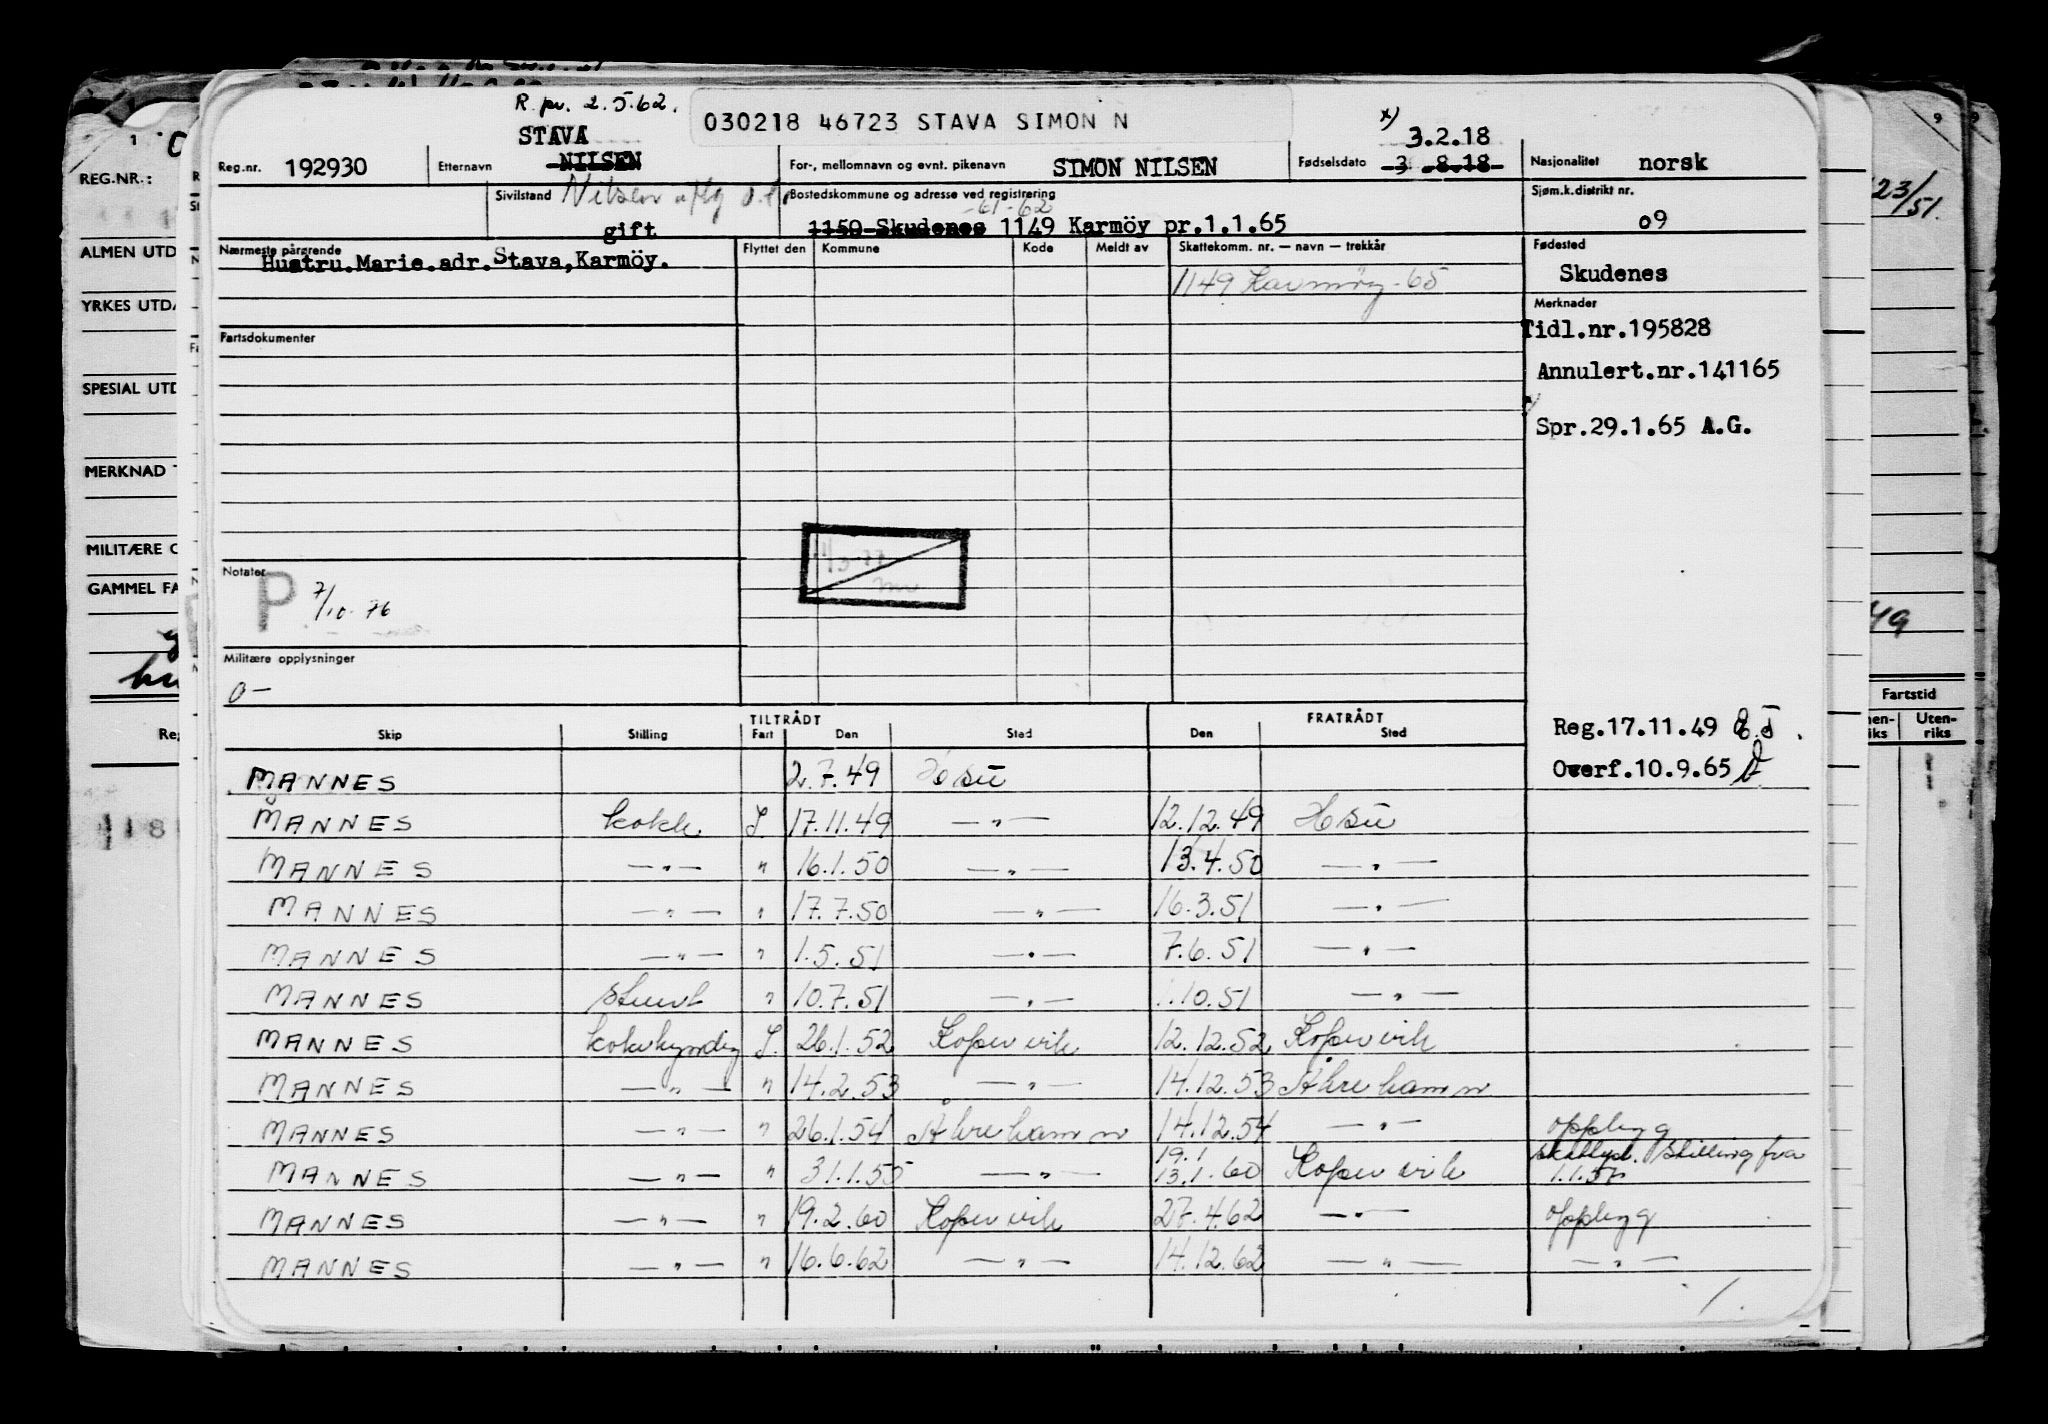 R. pr. 2.5.62.
030218 46723 STAVA SIMON N
x)
STAVA
3.2.18
Reg.nr. 192930 Etternavn NILSEN For-, mellomnavn og evnt. pikenavn SIMON NILSEN Fødselsdato 3 .8.18 Nasjonalitet norsk
Sivilstand Nilsen Bostedskommune og adresse ved registrering Sjøm.k.distrikt nr.
-61-62
gift 1150 Skudenes 1149 Karmöy pr.1.1.65 o9
Nærmeste pårørende Flyttet den Kommune Kode Meldt av Skattekomm. nr. — navn — trekkår Fødested
Hustru.Marie.adr.Stava,Karmöy.
1149 Karmöy-65 Skudenes
Merknader
Tidl.nr.195828
Fartsdokumenter
Annulert.nr.141165
Spr.29.1.65 A.G.
Notater
P 7/10-76
Militære opplysninger
0-
TILTRÅDT FRATRÅDT
Skip Stilling Fart Den Sted Den Sted
Reg.17.11.49
Overf.10.9.65
MANNES 2.7.49
MANNES kokk 17.11.49 — " — 12.12.49
MANNES — " — " 16.1.50 — " — 13.4.50 — " —
MANNES — " — " 17.7.50 — " — 16.3.51 — " —
MANNES — " — " 1.5.51 — " — 7.6.51 — " —
MANNES stuert " 10.7.51 — " — 10.51 — " —
MANNES kokkyndig 26.1.52 Kopervik 12.12.52 Kopervik
MANNES — " — " 14.2.53 — " — 14.12.53 Åkrehamn
MANNES — " — " 26.1.54 Åkrehamn 14.12.54 — " — oppbyg
19.1
MANNES — " — " 31.1.55 — " — 13.1.60 Kopervik stilling fra
MANNES — " — " 19.2.60 Kopervik 27.4.62 — " — oppbyg
MANNES — " — " 16.6.62 — " — 14.12.62 — " — — " —
1.
REG.NR.:
ALMEN UTD
YRKES UTDA
SPESIAL UTD
MERKNAD
MILITÆRE O
GAMMEL FA
Reg
23/51.
49
Fartstid
nen-riks Uten-riks